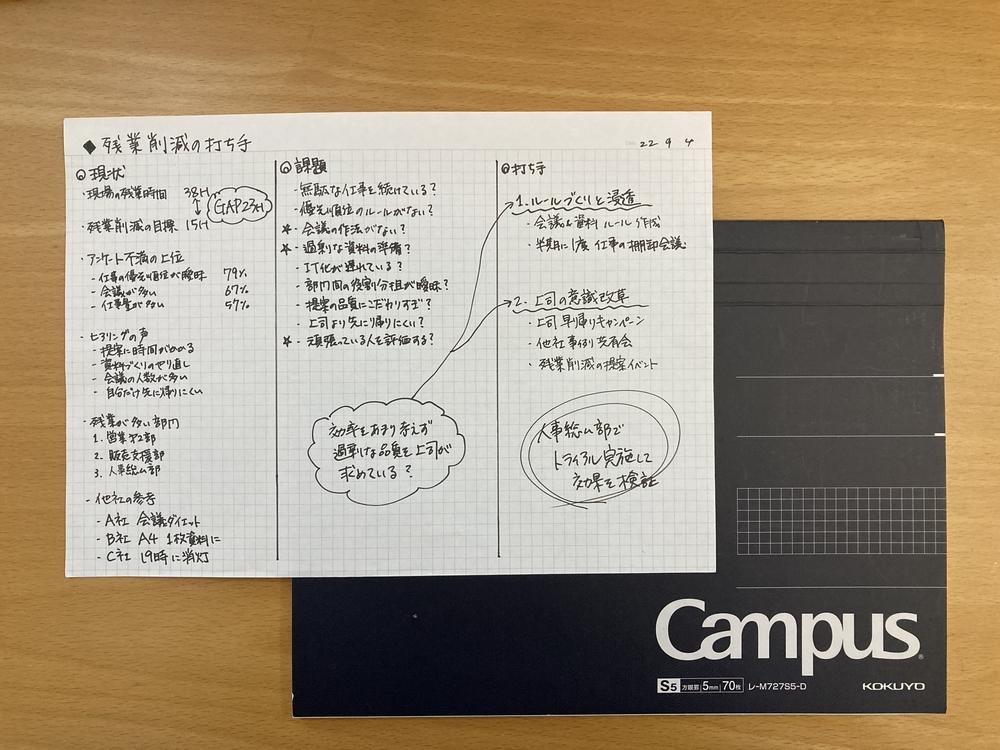 ◆ 残業削減の打ち手
22 9 4
◎ 現状
・現場の残業時間 38H
GAP23H
・残業削減の目標 15H
・アンケート不満の上位
- 仕事の優先順位が曖昧 79%
- 会議が多い 67%
- 仕事量が多い 57%
・ヒアリングの声
- 提案に時間がかかる
- 資料づくりのやり直し
- 会議の人数が多い
- 自分だけ先に帰りにくい
・残業が多い部門
1. 営業第2部
2. 販売支援部
3. 人事総ム部
- 他社の参考
- A社 会議ダイエット
- B社 A4 1枚資料に
- C社 19時に消灯
◎ 課題
- 無駄な仕事を続けている?
- 優先順位のルールがない?
★- 会議の作法がない?
★- 過剰な資料の準備?
- IT化が遅れている?
- 部門間の役割分担が曖昧?
- 提案の品質にこだわりすぎ?
- 上司より先に帰りにくい?
★- 頑張っている人を評価する?
効率をあまり考えず
過剰な品質を上司が
求めている?
◎ 打ち手
1. ルールづくりと浸透
・会議&資料 ルール作成
・半期に1度 仕事の棚卸会議
2. 上司の意識改革
・上司早帰りキャンペーン
・他社事例共有会
・残業削減の提案イベント
人事総ム部で
トライアル実施して
効果を検証
Campus
S5 方眼罫 5mm 70枚 レ-M727S5-D
KOKUYO